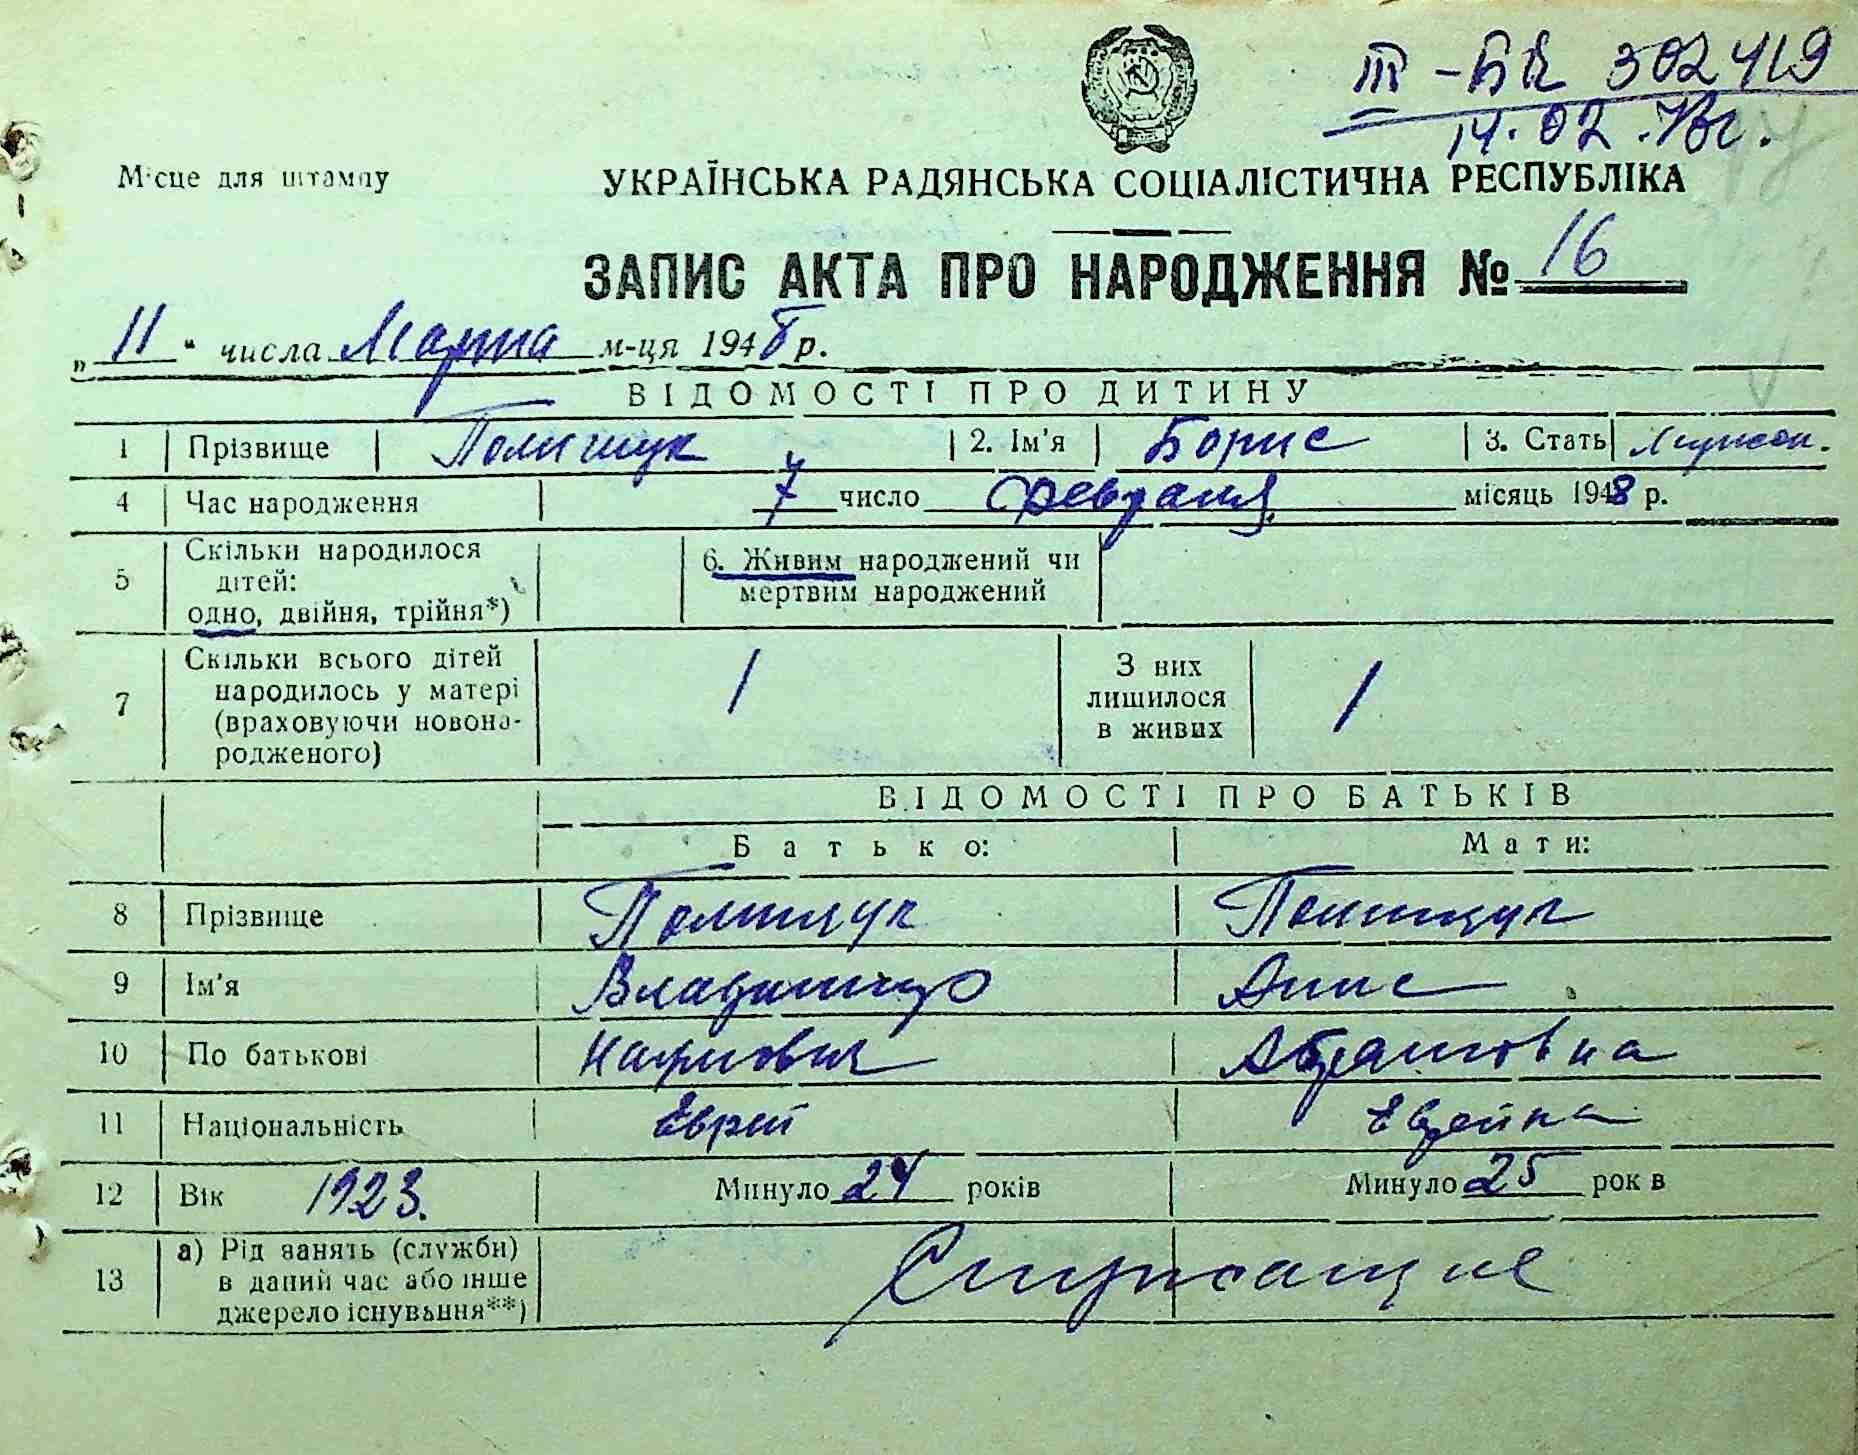 III -БК 302419
14.02.78г.
Місце для штампу
УКРАЇНСЬКА РАДЯНСЬКА СОЦІАЛІСТИЧНА РЕСПУБЛІКА
ЗАПИС АКТА ПРО НАРОДЖЕННЯ № 16
„11“ числа Марта м-ця 1948 р.
ВІДОМОСТІ ПРО ДИТИНУ
1 Прізвище Полищук 2. Ім'я Борис 3. Стать Мужск.
4 Час народження 7 число Февраля місяць 1948 р.
5 Скільки народилося дітей: одно, двійня, трійня*) 6. Живим народжений чи мертвим народжений
7 Скільки всього дітей народилось у матері (враховуючи новонародженого) 1 З них лишилося в живих 1
ВІДОМОСТІ ПРО БАТЬКІВ
Батько: Мати:
8 Прізвище Полищук Полищук
9 Ім'я Владимир
10 По батькові Наумович Абрамовна
11 Національність Еврей Еврейка
12 Вік 1923. Минуло 24 років Минуло 25 рок в
13 а) Рід занять (служби) в даний час або інше джерело існування**) Служащие